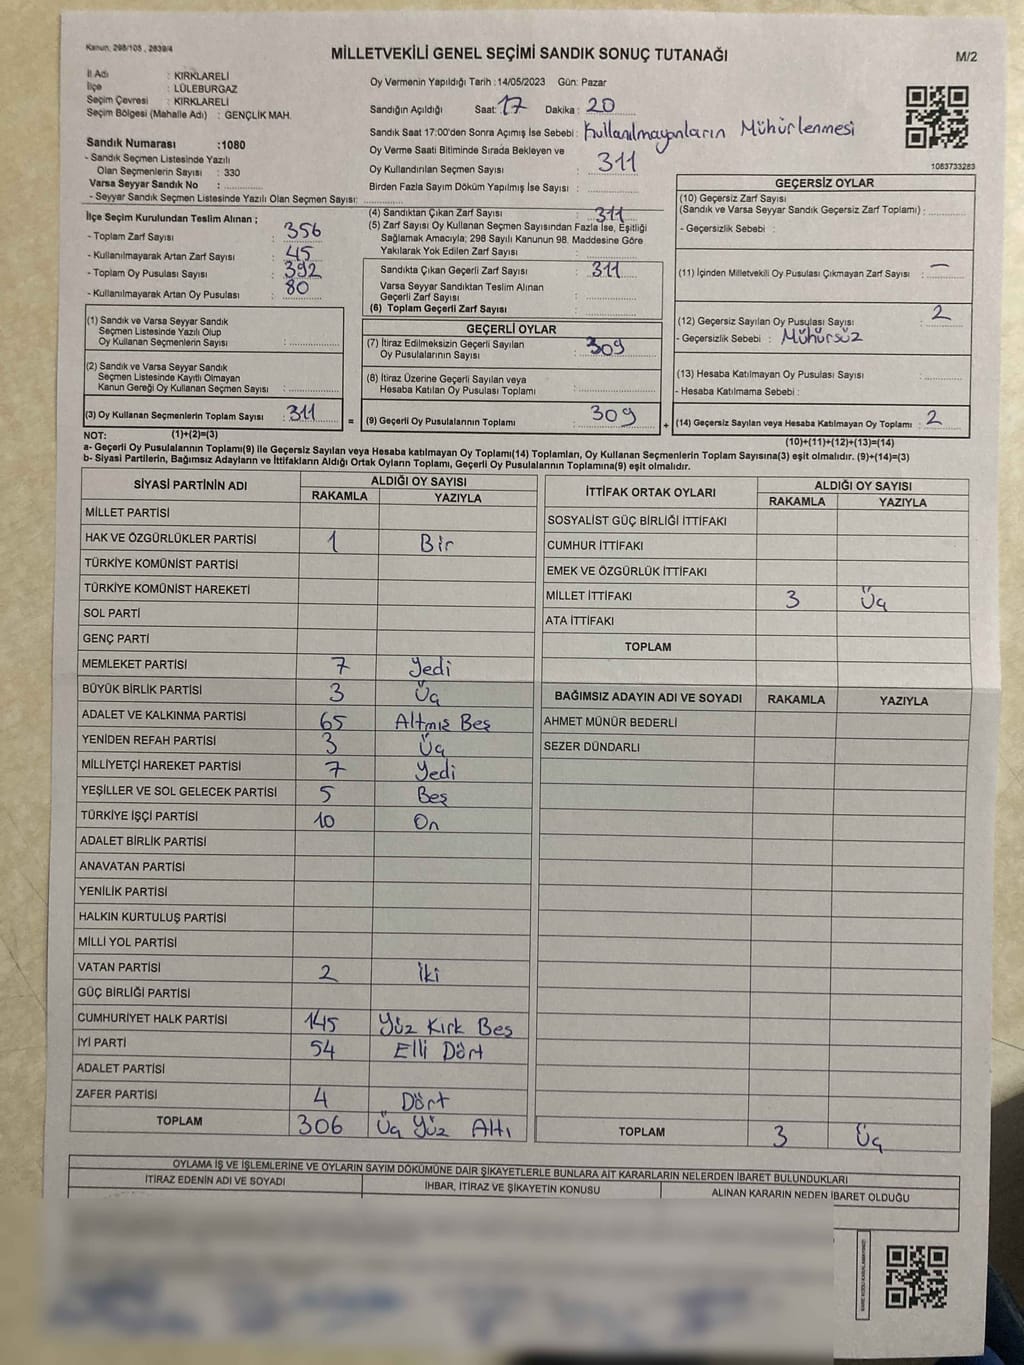 Kanun, 298/105 , 2839/4
MİLLETVEKİLİ GENEL SEÇİMİ SANDIK SONUÇ TUTANAĞI
M/2
İl Adı : KIRKLARELİ
İlçe : LÜLEBURGAZ
Seçim Çevresi : KIRKLARELİ
Seçim Bölgesi (Mahalle Adı) : GENÇLİK MAH.
Sandık Numarası :1080
- Sandık Seçmen Listesinde Yazılı
Olan Seçmenlerin Sayısı : 330
Varsa Seyyar Sandık No :
- Seyyar Sandık Seçmen Listesinde Yazılı Olan Seçmen Sayısı:
Oy Vermenin Yapıldığı Tarih :14/05/2023 Gün: Pazar
Sandığın Açıldığı Saat: 17 Dakika : 20
Sandık Saat 17:00'den Sonra Açımış İse Sebebi : Kullanılmayanların Mühürlenmesi
Oy Verme Saati Bitiminde Sırada Bekleyen ve
Oy Kullandırılan Seçmen Sayısı : 311
Birden Fazla Sayım Döküm Yapılmış İse Sayısı :
1083733283
İlçe Seçim Kurulundan Teslim Alınan ;
- Toplam Zarf Sayısı : 356
- Kullanılmayarak Artan Zarf Sayısı : 45
- Toplam Oy Pusulası Sayısı : 392
- Kullanılmayarak Artan Oy Pusulası : 80
(1) Sandık ve Varsa Seyyar Sandık
Seçmen Listesinde Yazılı Olup
Oy Kullanan Seçmenlerin Sayısı :
(2) Sandık ve Varsa Seyyar Sandık
Seçmen Listesinde Kayıtlı Olmayan
Kanun Gereği Oy Kullanan Seçmen Sayısı :
(3) Oy Kullanan Seçmenlerin Toplam Sayısı : 311
(1)+(2)=(3)
(4) Sandıktan Çıkan Zarf Sayısı : 311
(5) Zarf Sayısı Oy Kullanan Seçmen Sayısından Fazla İse, Eşitliği
Sağlamak Amacıyla; 298 Sayılı Kanunun 98. Maddesine Göre
Yakılarak Yok Edilen Zarf Sayısı :
Sandıkta Çıkan Geçerli Zarf Sayısı : 311
Varsa Seyyar Sandıktan Teslim Alınan
Geçerli Zarf Sayısı :
(6) Toplam Geçerli Zarf Sayısı :
GEÇERLİ OYLAR
(7) İtiraz Edilmeksizin Geçerli Sayılan
Oy Pusulalarının Sayısı : 309
(8) İtiraz Üzerine Geçerli Sayılan veya
Hesaba Katılan Oy Pusulası Toplamı :
= (9) Geçerli Oy Pusulalarının Toplamı : 309
GEÇERSİZ OYLAR
(10) Geçersiz Zarf Sayısı
(Sandık ve Varsa Seyyar Sandık Geçersiz Zarf Toplamı) :
- Geçersizlik Sebebi :
(11) İçinden Milletvekili Oy Pusulası Çıkmayan Zarf Sayısı : —
(12) Geçersiz Sayılan Oy Pusulası Sayısı : 2
- Geçersizlik Sebebi : Mühürsüz
(13) Hesaba Katılmayan Oy Pusulası Sayısı :
- Hesaba Katılmama Sebebi :
+ (14) Geçersiz Sayılan veya Hesaba Katılmayan Oy Toplamı : 2
(10)+(11)+(12)+(13)=(14)
NOT:
a- Geçerli Oy Pusulalarının Toplamı(9) ile Geçersiz Sayılan veya Hesaba katılmayan Oy Toplamı(14) Toplamları, Oy Kullanan Seçmenlerin Toplam Sayısına(3) eşit olmalıdır. (9)+(14)=(3)
b- Siyasi Partilerin, Bağımsız Adayların ve İttifakların Aldığı Ortak Oyların Toplamı, Geçerli Oy Pusulalarının Toplamına(9) eşit olmalıdır.
SİYASİ PARTİNİN ADI ALDIĞI OY SAYISI
RAKAMLA YAZIYLA
MİLLET PARTİSİ
HAK VE ÖZGÜRLÜKLER PARTİSİ 1 Bir
TÜRKİYE KOMÜNİST PARTİSİ
TÜRKİYE KOMÜNİST HAREKETİ
SOL PARTİ
GENÇ PARTİ
MEMLEKET PARTİSİ 7 Yedi
BÜYÜK BİRLİK PARTİSİ 3 Üç
ADALET VE KALKINMA PARTİSİ 65 Altmış Beş
YENİDEN REFAH PARTİSİ 3 Üç
MİLLİYETÇİ HAREKET PARTİSİ 7 Yedi
YEŞİLLER VE SOL GELECEK PARTİSİ 5 Beş
TÜRKİYE İŞÇİ PARTİSİ 10 On
ADALET BİRLİK PARTİSİ
ANAVATAN PARTİSİ
YENİLİK PARTİSİ
HALKIN KURTULUŞ PARTİSİ
MİLLİ YOL PARTİSİ
VATAN PARTİSİ 2 İki
GÜÇ BİRLİĞİ PARTİSİ
CUMHURİYET HALK PARTİSİ 145 Yüz Kırk Beş
İYİ PARTİ 54 Elli Dört
ADALET PARTİSİ
ZAFER PARTİSİ 4 Dört
TOPLAM 306 Üç Yüz Altı
İTTİFAK ORTAK OYLARI ALDIĞI OY SAYISI
RAKAMLA YAZIYLA
SOSYALİST GÜÇ BİRLİĞİ İTTİFAKI
CUMHUR İTTİFAKI
EMEK VE ÖZGÜRLÜK İTTİFAKI
MİLLET İTTİFAKI 3 Üç
ATA İTTİFAKI
TOPLAM
BAĞIMSIZ ADAYIN ADI VE SOYADI RAKAMLA YAZIYLA
AHMET MÜNÜR BEDERLİ
SEZER DÜNDARLI
TOPLAM 3 Üç
OYLAMA İŞ VE İŞLEMLERİNE VE OYLARIN SAYIM DÖKÜMÜNE DAİR ŞİKAYETLERLE BUNLARA AİT KARARLARIN NELERDEN İBARET BULUNDUKLARI
İTİRAZ EDENİN ADI VE SOYADI İHBAR, İTİRAZ VE ŞİKAYETİN KONUSU ALINAN KARARIN NEDEN İBARET OLDUĞU